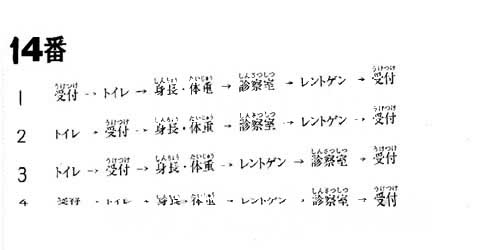 14番
1 受付 → トイレ → 身長・体重 → 診察室 → レントゲン → 受付
2 トイレ → 受付 → 身長・体重 → 診察室 → レントゲン → 受付
3 トイレ → 受付 → 身長・体重 → レントゲン → 診察室 → 受付
4 受付 → トイレ → 身長・体重 → レントゲン → 診察室 → 受付